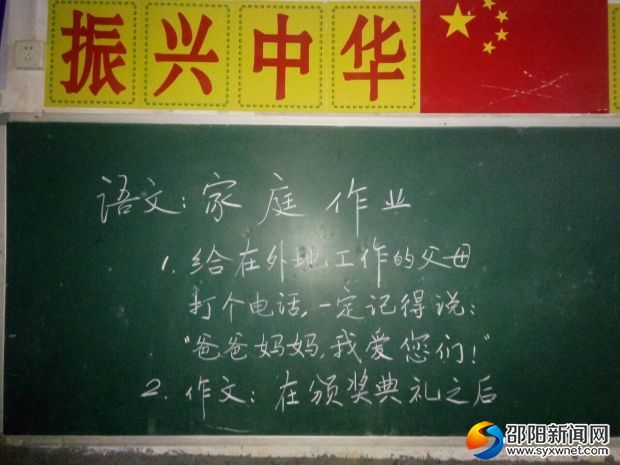 振兴中华
语文：家庭作业
1. 给在外地工作的父母
打个电话，一定记得说：
“爸爸妈妈，我爱您们！”
2. 作文：在颁奖典礼之后
邵阳新闻网
www.syxwnet.com